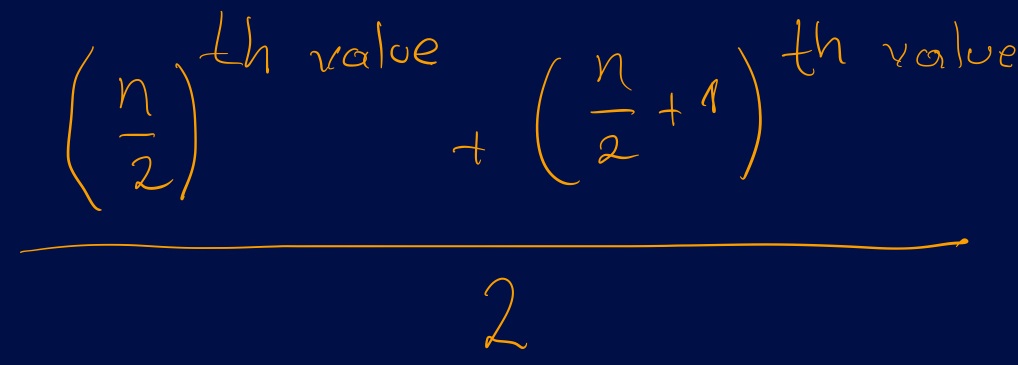 (n/2)^th value + (n/2 + 1)^th value
2